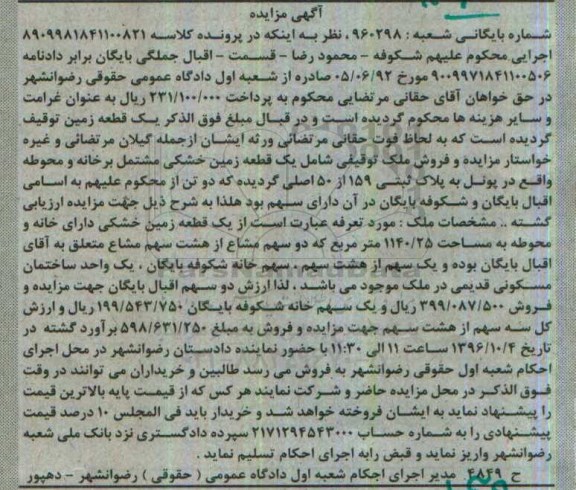 آگهی مزایده
شماره بایگانی شعبه : ۹۶۰۲۹۸ ، نظر به اینکه در پرونده کلاسه ۸۹۰۹۹۸۱۸۴۱۱۰۰۸۲۱
اجرایی محکوم علیهم شکوفه – محمود رضا – قسمت – اقبال جملگی بایگان برابر دادنامه
۹۰۰۹۹۷۱۸۴۱۱۰۰۵۰۶ مورخ ۰۵/۰۶/۹۲ صادره از شعبه اول دادگاه عمومی حقوقی رضوانشهر
در حق خواهان آقای حقانی مرتضایی محکوم به پرداخت ۲۳۱/۱۰۰/۰۰۰ ریال به عنوان غرامت
و سایر هزینه ها محکوم گردیده است و در قبال مبلغ فوق الذکر یک قطعه زمین توقیف
گردیده است که به لحاظ فوت حقانی مرتضائی ورثه ایشان ازجمله گیلان مرتضائی و غیره
خواستار مزایده و فروش ملک توقیفی شامل یک قطعه زمین خشکی مشتمل برخانه و محوطه
واقع در پونل به پلاک ثبتی ۱۵۹ از ۵۰ اصلی گردیده که دو تن از محکوم علیهم به اسامی
اقبال بایگان و شکوفه بایگان در آن دارای سهم بود هلذا به شرح ذیل جهت مزایده ارزیابی
گشته .. مشخصات ملک : مورد تعرفه عبارت است از یک قطعه زمین خشکی دارای خانه و
محوطه به مساحت ۱۱۴۰/۲۵ متر مربع که دو سهم مشاع از هشت سهم مشاع متعلق به آقای
اقبال بایگان بوده و یک سهم از هشت سهم ، سهم خانه شکوفه بایگان ، یک واحد ساختمان
مسکونی قدیمی در ملک موجود می باشد ، لذا ارزش دو سهم اقبال بایگان جهت مزایده و
فروش ۳۹۹/۰۸۷/۵۰۰ ریال و یک سهم خانه شکوفه بایگان ۱۹۹/۵۴۳/۷۵۰ ریال و ارزش
کل سه سهم از هشت سهم جهت مزایده و فروش به مبلغ ۵۹۸/۶۳۱/۲۵۰ برآورد گشته در
تاریخ ۱۳۹۶/۱۰/۴ ساعت ۱۱ الی ۱۱:۳۰ با حضور نماینده دادستان رضوانشهر در محل اجرای
احکام شعبه اول حقوقی رضوانشهر به فروش می رسد طالبین و خریداران می توانند در وقت
فوق الذکر در محل مزایده حاضر و شرکت نمایند هر کس که از قیمت پایه بالاترین قیمت
را پیشنهاد نماید به ایشان فروخته خواهد شد و خریدار باید فی المجلس ۱۰ درصد قیمت
پیشنهادی را به شماره حساب ۲۱۷۱۲۹۴۵۴۳۰۰۰ سپرده دادگستری نزد بانک ملی شعبه
رضوانشهر واریز نماید و قبض رابه اجرای احکام تسلیم نماید .
ح ۴۸۴۹ مدیر اجرای اجکام شعبه اول دادگاه عمومی ( حقوقی ) رضوانشهر – دهپور